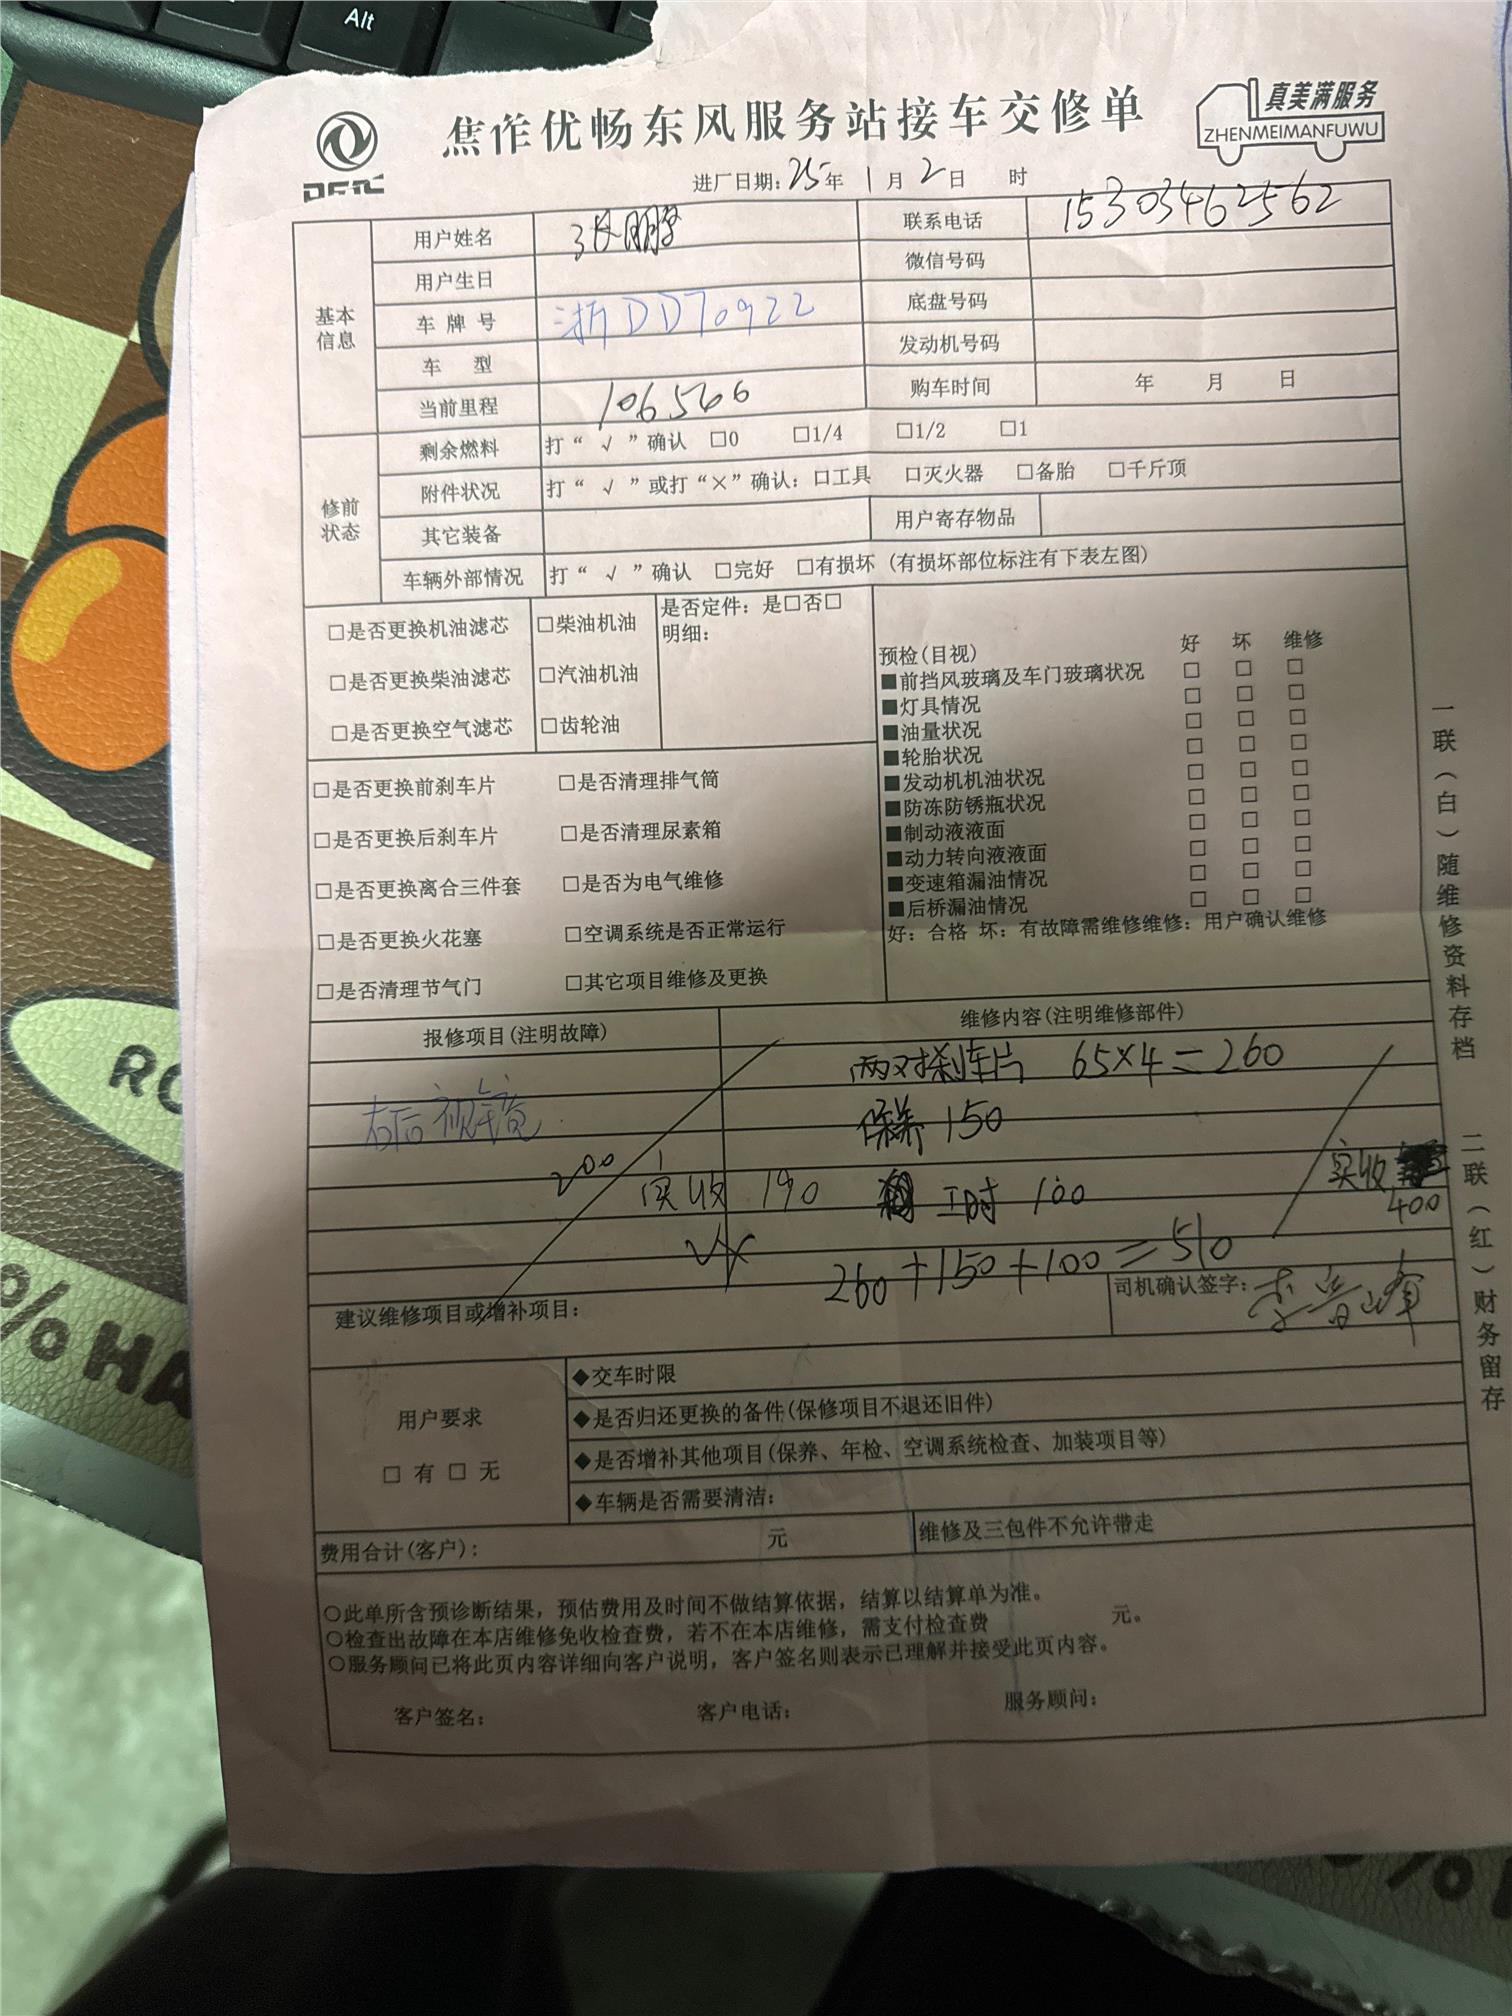 Alt
焦作优畅东风服务站接车交修单
真美满服务
ZHENMEIMANFUWU
进厂日期：25年 1月 2日 时
基本信息
用户姓名 张朋
联系电话 15303462562
用户生日
微信号码
车牌号 浙DD70922
底盘号码
车 型
发动机号码
当前里程 106566
购车时间 年 月 日
修前状态
剩余燃料 打“ √ ”确认 □0 □1/4 □1/2 □1
附件状况 打“ √ ”或打“×”确认：□工具 □灭火器 □备胎 □千斤顶
其它装备
用户寄存物品
车辆外部情况 打“ √ ”确认 □完好 □有损坏（有损坏部位标注有下表左图）
□是否更换机油滤芯 □柴油机油
□是否更换柴油滤芯 □汽油机油
□是否更换空气滤芯 □齿轮油
是否定件：是□否□
明细：
□是否更换前刹车片 □是否清理排气筒
□是否更换后刹车片 □是否清理尿素箱
□是否更换离合三件套 □是否为电气维修
□是否更换火花塞 □空调系统是否正常运行
□是否清理节气门 □其它项目维修及更换
预检(目视) 好 坏 维修
■前挡风玻璃及车门玻璃状况 □ □ □
■灯具情况 □ □ □
■油量状况 □ □ □
■轮胎状况 □ □ □
■发动机机油状况 □ □ □
■防冻防锈瓶状况 □ □ □
■制动液液面 □ □ □
■动力转向液液面 □ □ □
■变速箱漏油情况 □ □ □
■后桥漏油情况 □ □ □
好：合格 坏：有故障需维修维修：用户确认维修
报修项目(注明故障)
维修内容(注明维修部件)
右后视镜
200
实收 190
两对刹车片 65×4=260
保养 150
工时 100
实收
400
260+150+100=510
建议维修项目或增补项目：
司机确认签字：李晋峰
用户要求
□ 有 □ 无
◆交车时限
◆是否归还更换的备件(保修项目不退还旧件)
◆是否增补其他项目(保养、年检、空调系统检查、加装项目等)
◆车辆是否需要清洁：
费用合计(客户)： 元
维修及三包件不允许带走
○此单所含预诊断结果，预估费用及时间不做结算依据，结算以结算单为准。
○检查出故障在本店维修免收检查费，若不在本店维修，需支付检查费 元。
○服务顾问已将此页内容详细向客户说明，客户签名则表示已理解并接受此页内容。
客户签名： 客户电话： 服务顾问：
一联（白）随维修资料存档
二联（红）财务留存